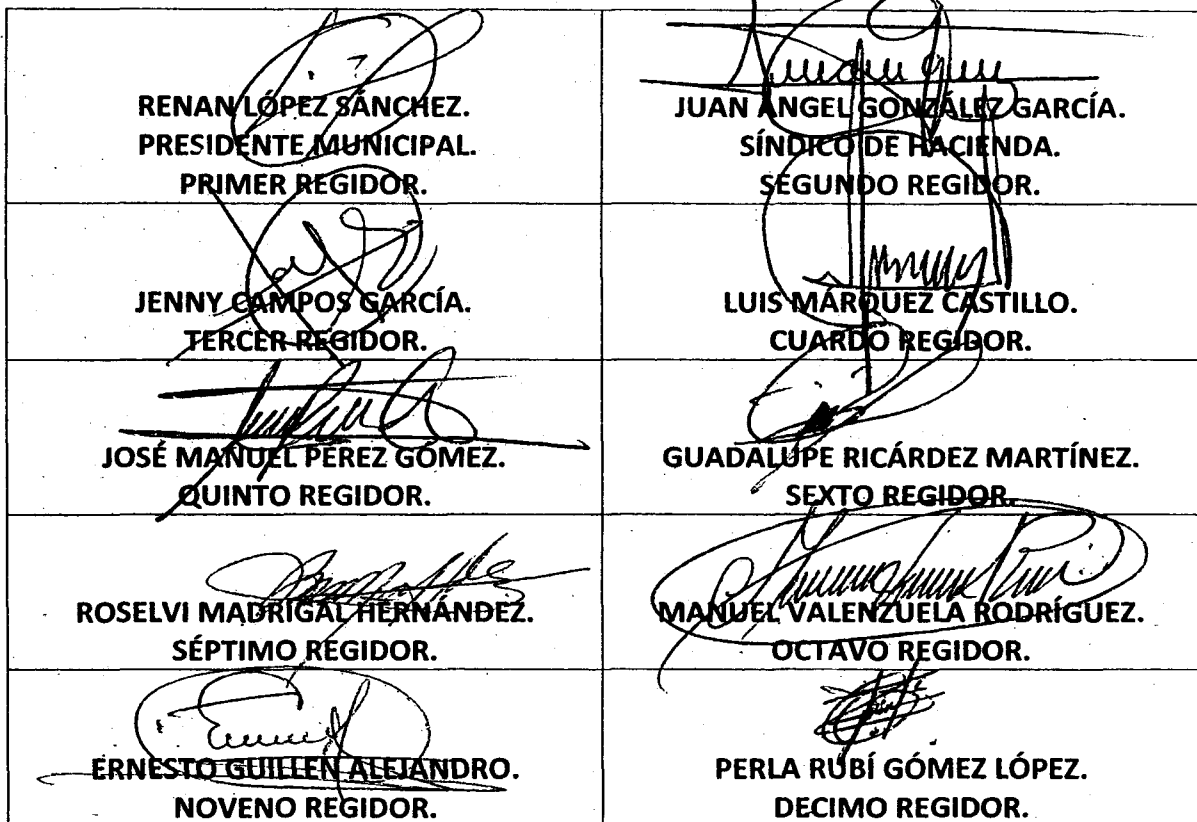 RENAN LÓPEZ SÁNCHEZ.
PRESIDENTE MUNICIPAL.
PRIMER REGIDOR.
JUAN ÁNGEL GONZÁLEZ GARCÍA.
SÍNDICO DE HACIENDA.
SEGUNDO REGIDOR.
JENNY CAMPOS GARCÍA.
TERCER REGIDOR.
LUIS MÁRQUEZ CASTILLO.
CUARDO REGIDOR.
JOSÉ MANUEL PÉREZ GÓMEZ.
QUINTO REGIDOR.
GUADALUPE RICÁRDEZ MARTÍNEZ.
SEXTO REGIDOR.
ROSELVI MADRIGAL HERNÁNDEZ.
SÉPTIMO REGIDOR.
MANUEL VALENZUELA RODRÍGUEZ.
OCTAVO REGIDOR.
ERNESTO GUILLEN ALEJANDRO.
NOVENO REGIDOR.
PERLA RUBÍ GÓMEZ LÓPEZ.
DECIMO REGIDOR.